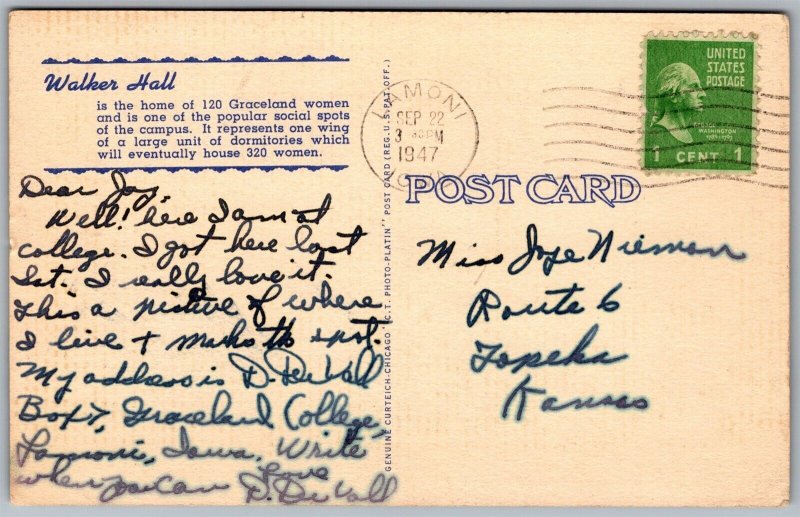 Walker Hall
is the home of 120 Graceland women
and is one of the popular social spots
of the campus. It represents one wing
of a large unit of dormitories which
will eventually house 320 women.
Dear Joy
Well! here I am at
college. I got here last
Sat. I really love it.
This a picture of where
I live + marks the spot.
My address is D. DeVall
Box 7, Graceland College,
Lamoni, Iowa. Write
when you can love
D. DeVall
GENUINE CURTEICH-CHICAGO "C.T. PHOTO-PLATIN" POST CARD (REG. U.S. PAT. OFF.)
LAMONI
SEP 22
3 PM
1947
IOWA
UNITED
STATES
POSTAGE
GEORGE
WASHINGTON
1789-1797
1 CENT 1
POST CARD
Miss Joye Nieman
Route 6
Topeka
Kansas